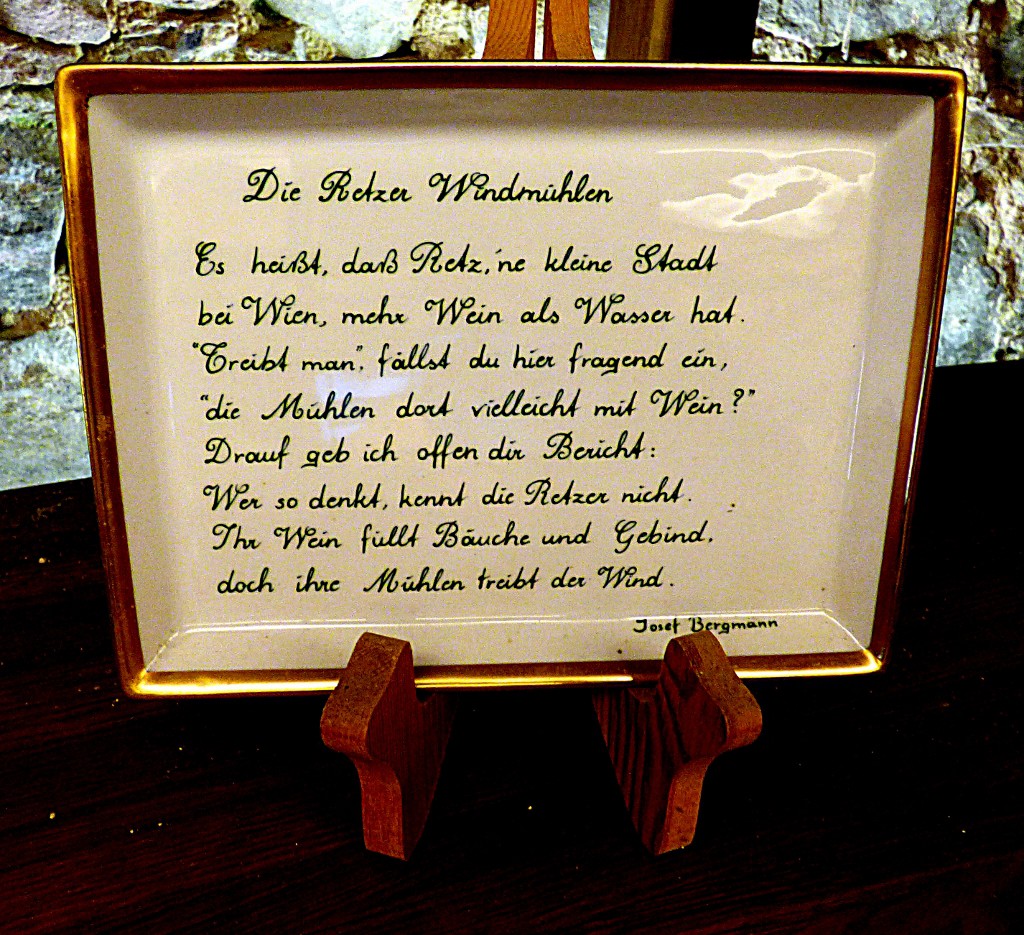 Die Retzer Windmühlen
Es heißt, daß Retz, 'ne kleine Stadt
bei Wien, mehr Wein als Wasser hat.
"Treibt man", fällst du hier fragend ein,
"die Mühlen dort vielleicht mit Wein?"
Drauf geb ich offen dir Bericht:
Wer so denkt, kennt die Retzer nicht.
Ihr Wein füllt Bäuche und Gebind,
doch ihre Mühlen treibt der Wind.
Josef Bergmann